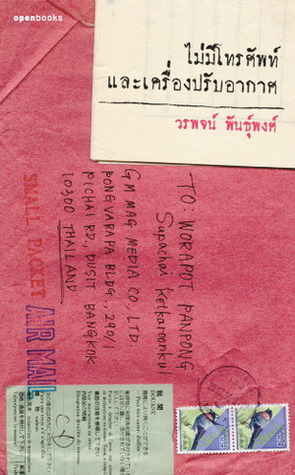 openbooks
ไม่มีโทรศัพท์
และเครื่องปรับอากาศ
วรพจน์ พันธุ์พงศ์
TO: WORAPOT PANPONG
Supachai Ketkaroonkul
GM MAG MEDIA CO., LTD.
PONGVARAPA BLDG., 290/1
PICHAI RD., DUSIT BANGKOK
10300 THAILAND
SMALL PACKET
AIR MAIL
DOUANE
CD
130
130